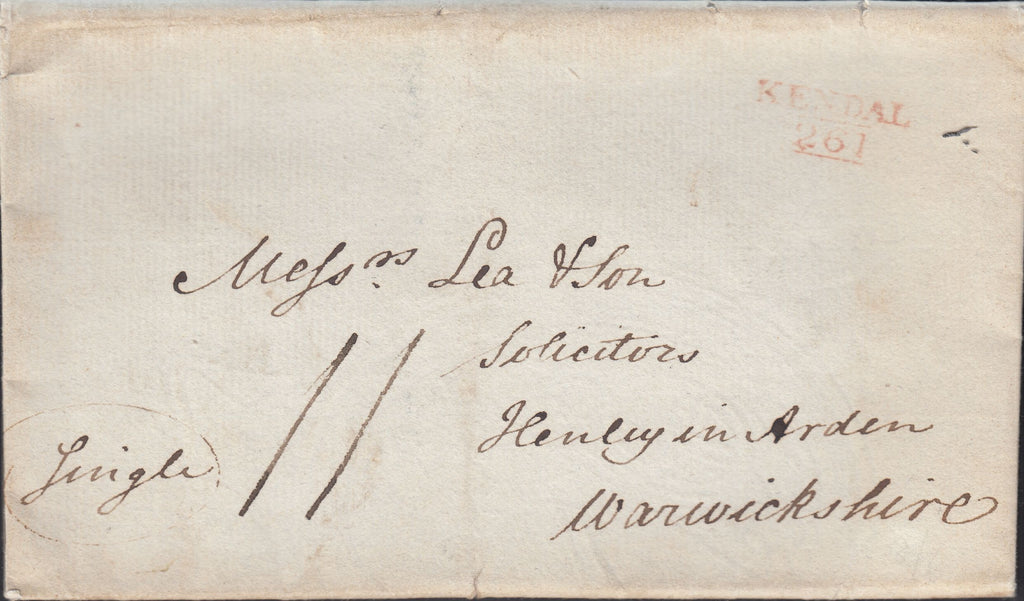 KENDAL
261
Messrs. Lea & Son
Solicitors
Henley in Arden
Warwickshire
11
Single